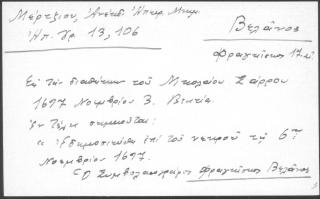 Μέρτζιου, Ἀνέκδ. Ἠπειρ. Μνημ.
Ἠπ. Χρ. 13, 106
Βελᾶνος
Φραγκίσκος 17 αἰ
Ἐκ τῆς διαθήκης τοῦ Νικολάου Σάρρου
1697 Νοεμβρίου 3. Βενετία.
Ἐν τέλει σημειοῦται:
"Ἐδημοσιεύθη ἐπὶ τοῦ νεκροῦ τῇ 6ῃ
Νοεμβρίου 1697.
Ὁ Συμβολαιογράφος Φραγκίσκος Βελᾶνος